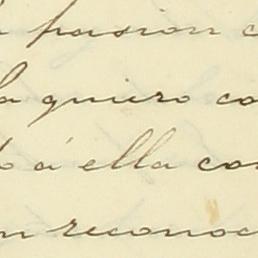 pasion c
la quiero co
o á ella con
n reconoc